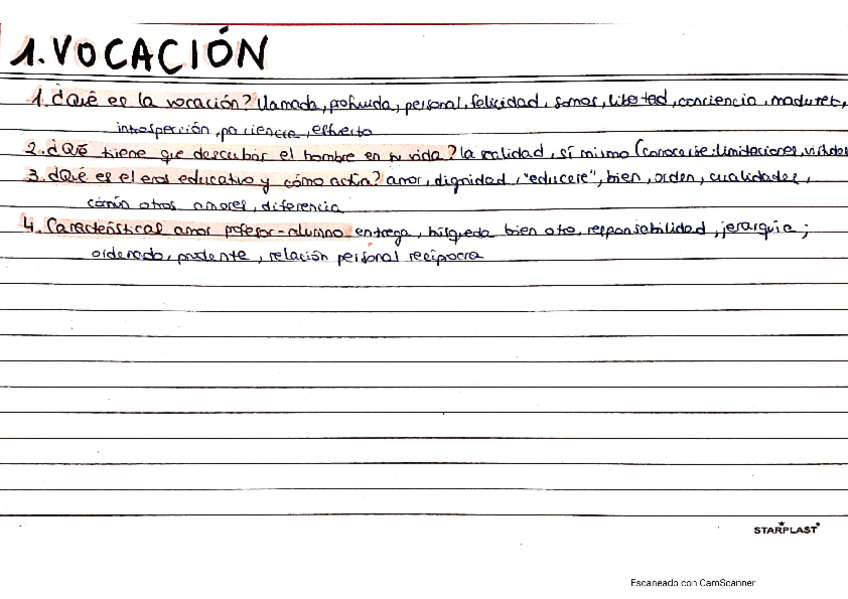 1. VOCACIÓN
1. ¿Qué es la vocación? llamada, profunda, personal, felicidad, somos, libertad, conciencia, madurez,
introspección, paciencia, esfuerzo
2. ¿Qué tiene que descubrir el hombre en su vida? la realidad, sí mismo (conocerse: limitaciones, virtudes
3. ¿Qué es el eros educativo y cómo actúa? amor, dignidad, "educere", bien, orden, cualidades,
común otros amores, diferencia
4. Características amor profesor-alumno entrega, búsqueda bien otro, responsabilidad, jerarquía;
ordenado, prudente, relación personal recíproca
STARPLAST
Escaneado con CamScanner